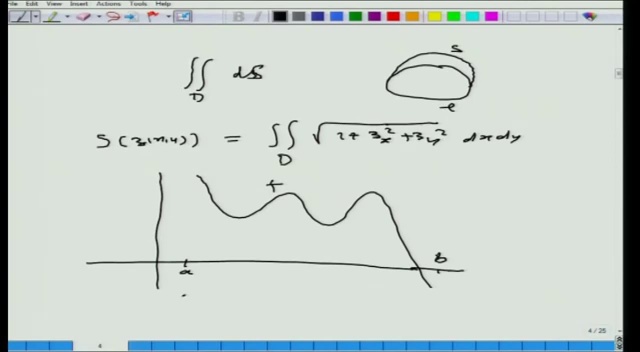 File Edit View Insert Actions Tools Help
∬ dS
D
S
S(z(x,y)) = ∬ √(1+z_x²+z_y²) dxdy
D
f
a
b
4
4 / 25